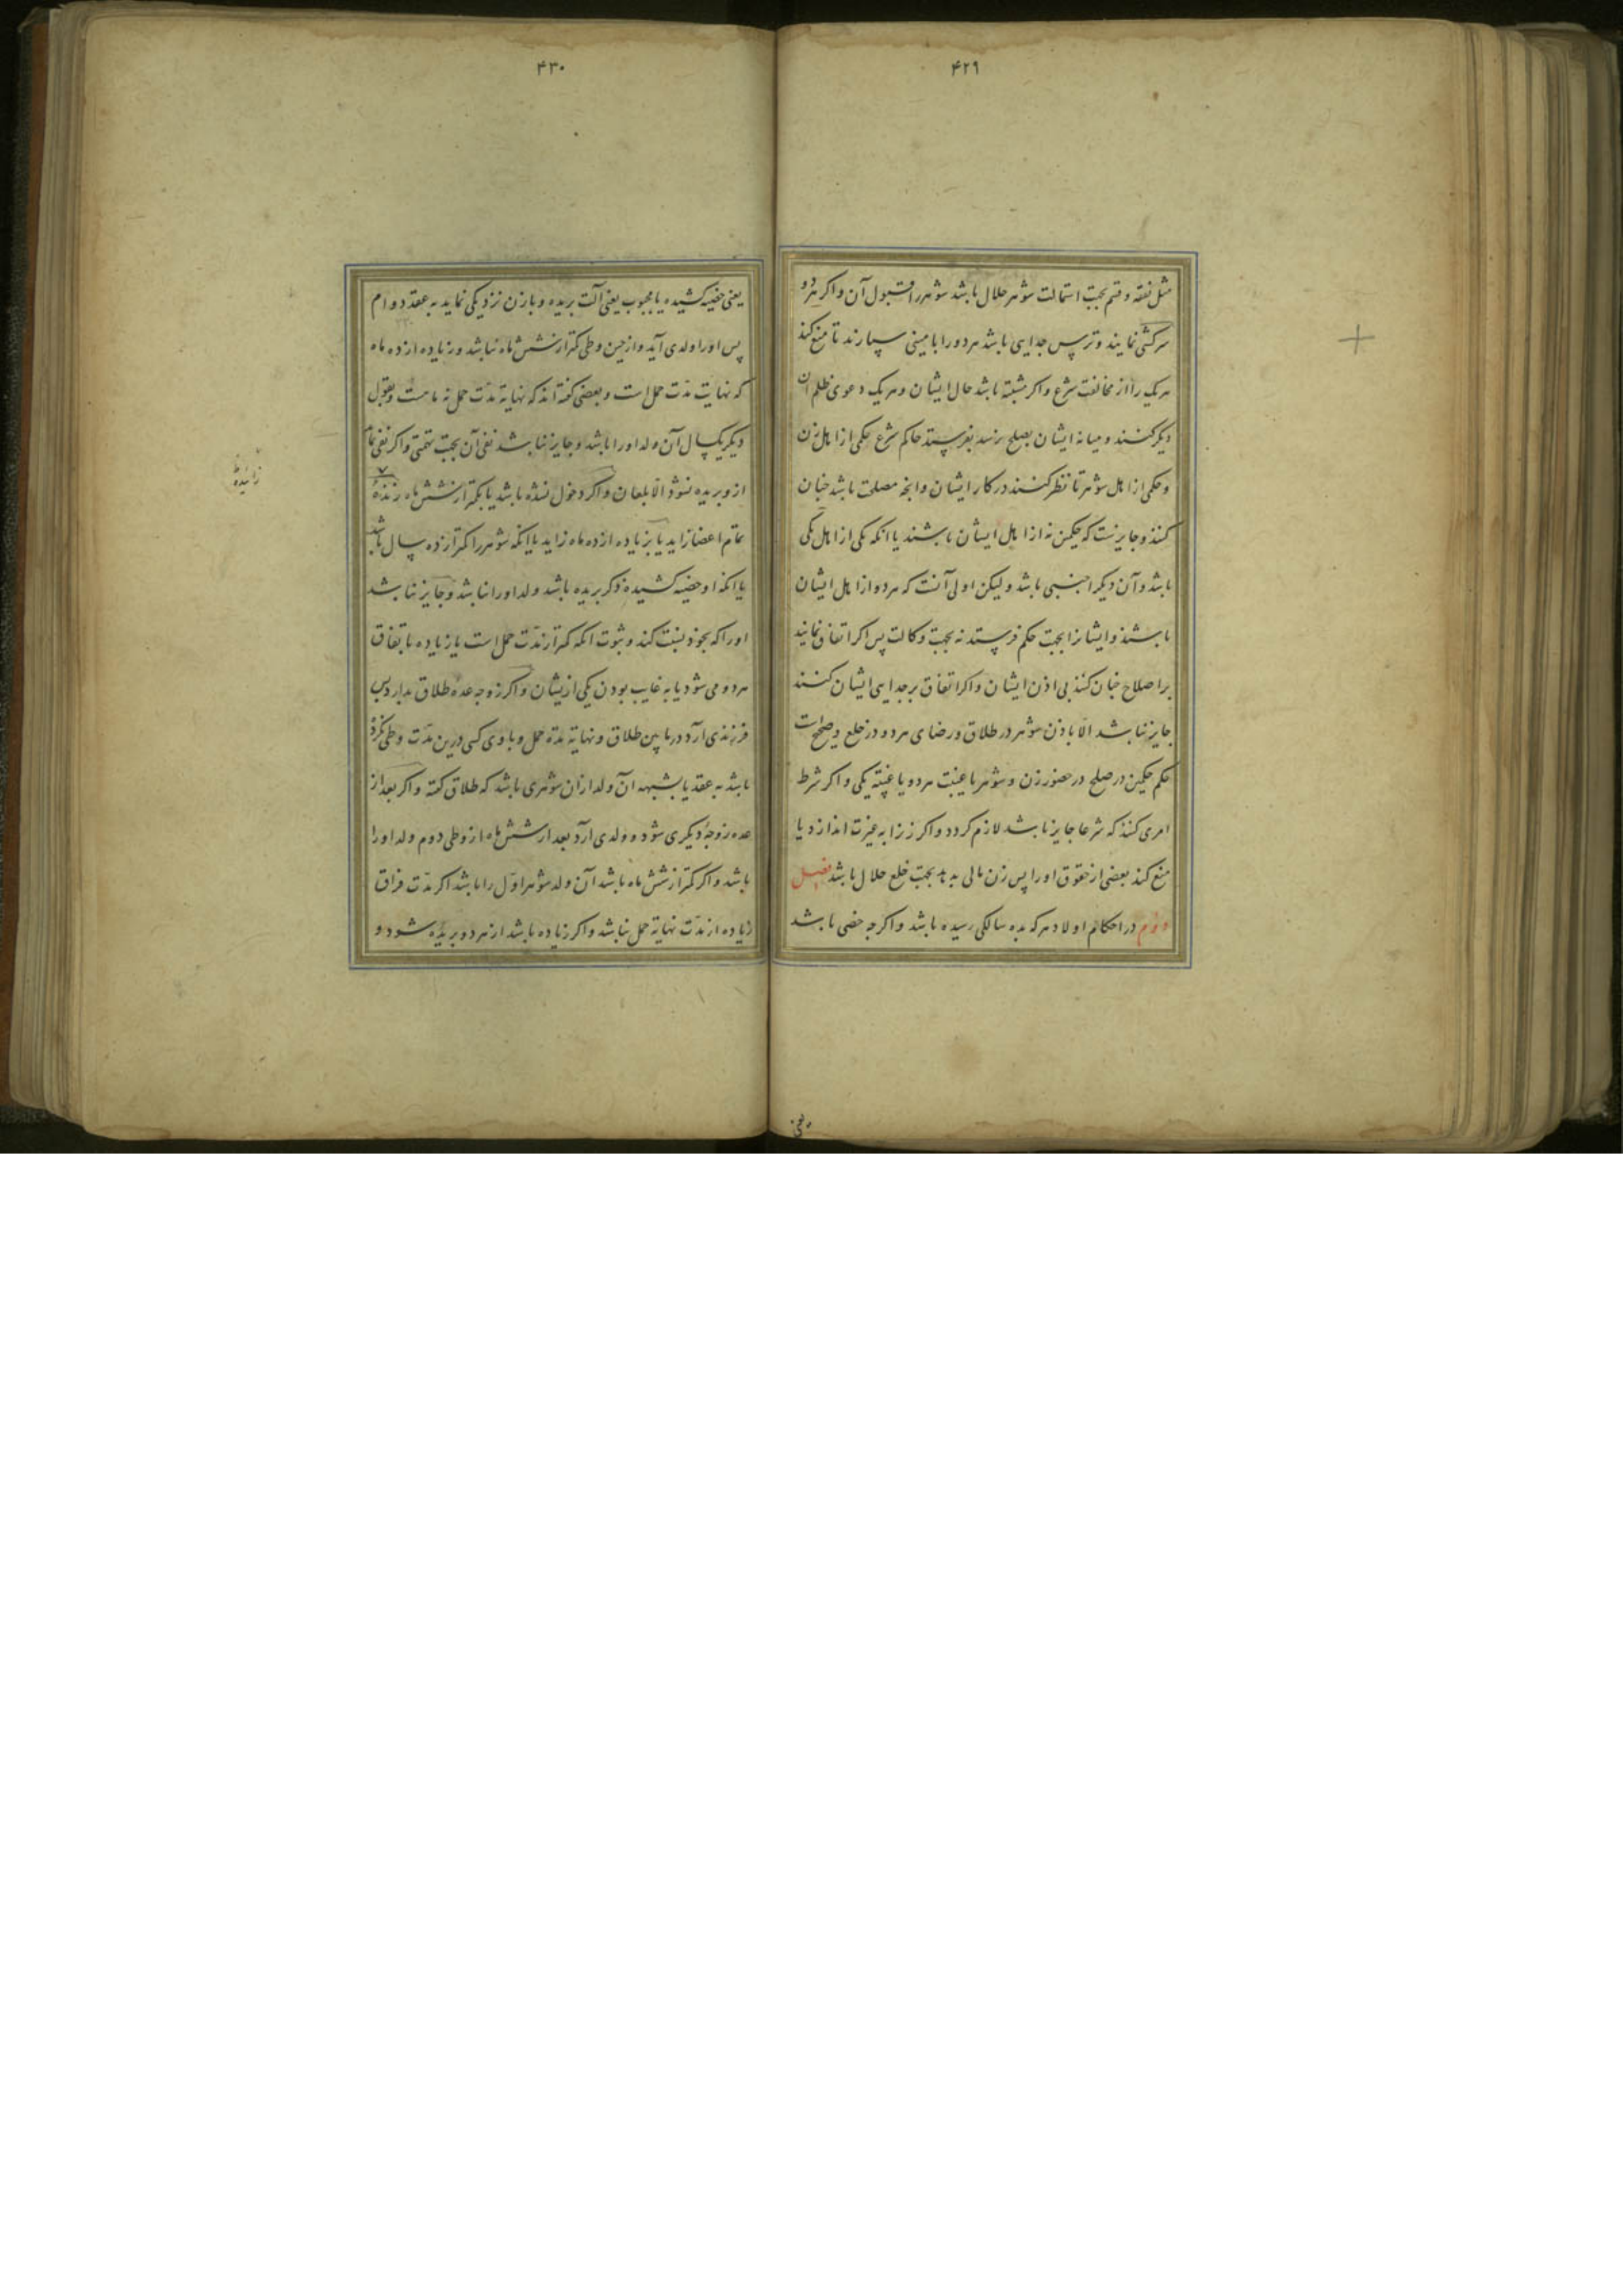 ۴۲۹
مثل نفقه و قسم بجهت استمالت شوهر حلال باشد شوهر را قبول آن و اکر هر دو
سرکشی نمایند و ترس جدایی باشد هر دو را بامینی سپارند تا منع کند
هر یک را از مخالفت شرع و اکر مشتبه باشد حال ایشان و هر یک دعوی ظلم آن
دیکر کنند و میانه ایشان بصلح نرسد بفرستد حاکم شرع حکمی از اهل زن
و حکمی از اهل شوهر تا نظر کنند در کار ایشان و انچه مصلحت باشد چنان
کنند و جایزست که حکمین نه از اهل ایشان باشند یا انکه یکی از اهل یکی
باشد و آن دیکر اجنبی باشد و لیکن اولی آنست که هر دو از اهل ایشان
باشند و ایشانرا بجهت حکم فرستد نه بجهت وکالت پس اکر اتفاق نمایند
بر اصلاح چنان کنند بی اذن ایشان و اکر اتفاق بر جدایی ایشان کنند
جایز نباشد الّا باذن شوهر در طلاق و رضای هر دو در خلع و صحیح است
حکم حکمین در صلح در حضور زن و شوهر با غیبت هر دو یا غیبة یکی و اکر شرط
امری کنند که شرعا جایز نباشد لازم نکردد و اکر زنرا بغیرت اندازد یا
منع کند بعضی از حقوق او را پس زن مالی بدهد بجهت خلع حلال باشد فصل
دوم در احکام اولاد هر که بده سالکی رسیده باشد و اکرچه خصی باشد
یعنی
۴۳۰
یعنی خصیه کشیده یا مجبوب یعنی آلت بریده و با زن نزدیکی نماید به عقد دوام
پس او را ولدی آید و از حین وطی کمتر از شش ماه نباشد و نه زیاده از ده ماه
که نهایت مدّت حمل است و بعضی کفته اند که نهایة مدّت حمل نه ماهست و بقول
دیکر یکسال آن ولد او را باشد و جایز نباشد نفی آن بجهت تهمتی و اکر نفی نماید
ازو بریده نشود الّا بلعان و اکر دخول نشده باشد یا بکمتر از شش ماه زنده
تمام اعضا زاید یا بزیاده از ده ماه زاید یا انکه شوهر را کمتر از ده سال باشد
یا انکه او خصیه کشیده ذکر بریده باشد ولد او را نباشد و جایز نباشد
او را که بخود نسبت کند و ثبوت انکه کمتر از مدّت حمل است یا زیاده باتفاق
هر دو می شود یا به غایب بودن یکی ازیشان و اکر زوجه عده طلاق بدارد پس
فرزندی آرد در مابین طلاق و نهایة مدة حمل و با وی کسی درین مدّت وطی نکرده
باشد به عقد یا بشبهه آن ولد ازان شوهری باشد که طلاق کفته و اکر بعد از
عده زوجهٔ دیکری شود و ولدی آرد بعد از شش ماه از وطی دوم ولد او را
باشد و اکر کمتر از شش ماه باشد آن ولد شوهر اوّل را باشد اکر مدّت فراق
زیاده از مدّت نهایة حمل نباشد و اکر زیاده باشد از هر دو بریده شود و
زاییده